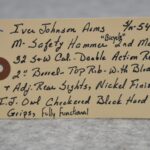 Iver Johnson Arms S/N-54
M-Safety Hammer "Bicycle" 2nd Mo
32 S+W Cal. Double Action Re
2" Barrel-Top Rib-With Bla
+ Adj. Rear Sights, Nickel Finis
I.J. Owl Checkered Black Hard
Grips, Fully Functional